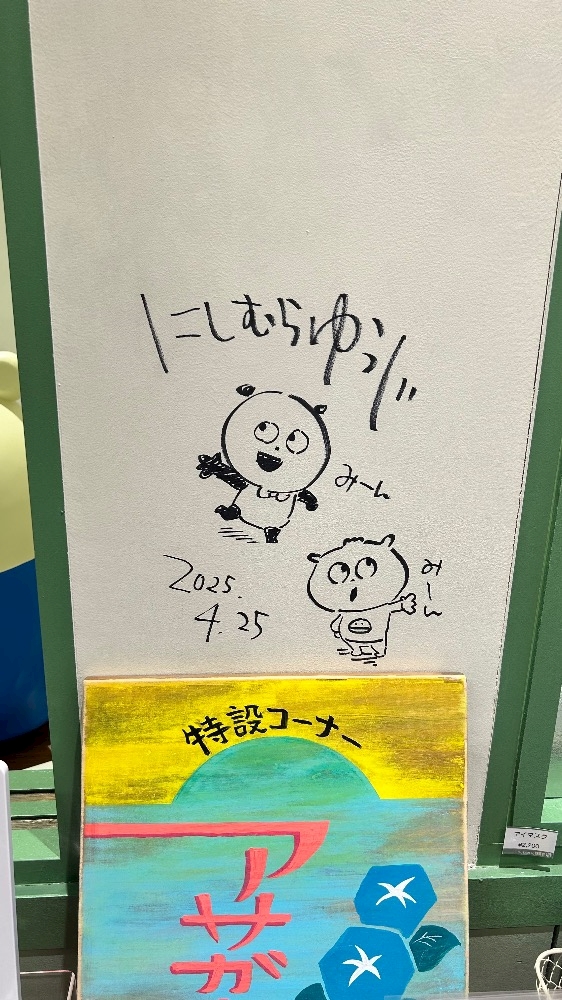 にしむらゆうじ
みーん
みーん
2025.
4.25
特設コーナー
アサガ
アイマスク
¥2,200